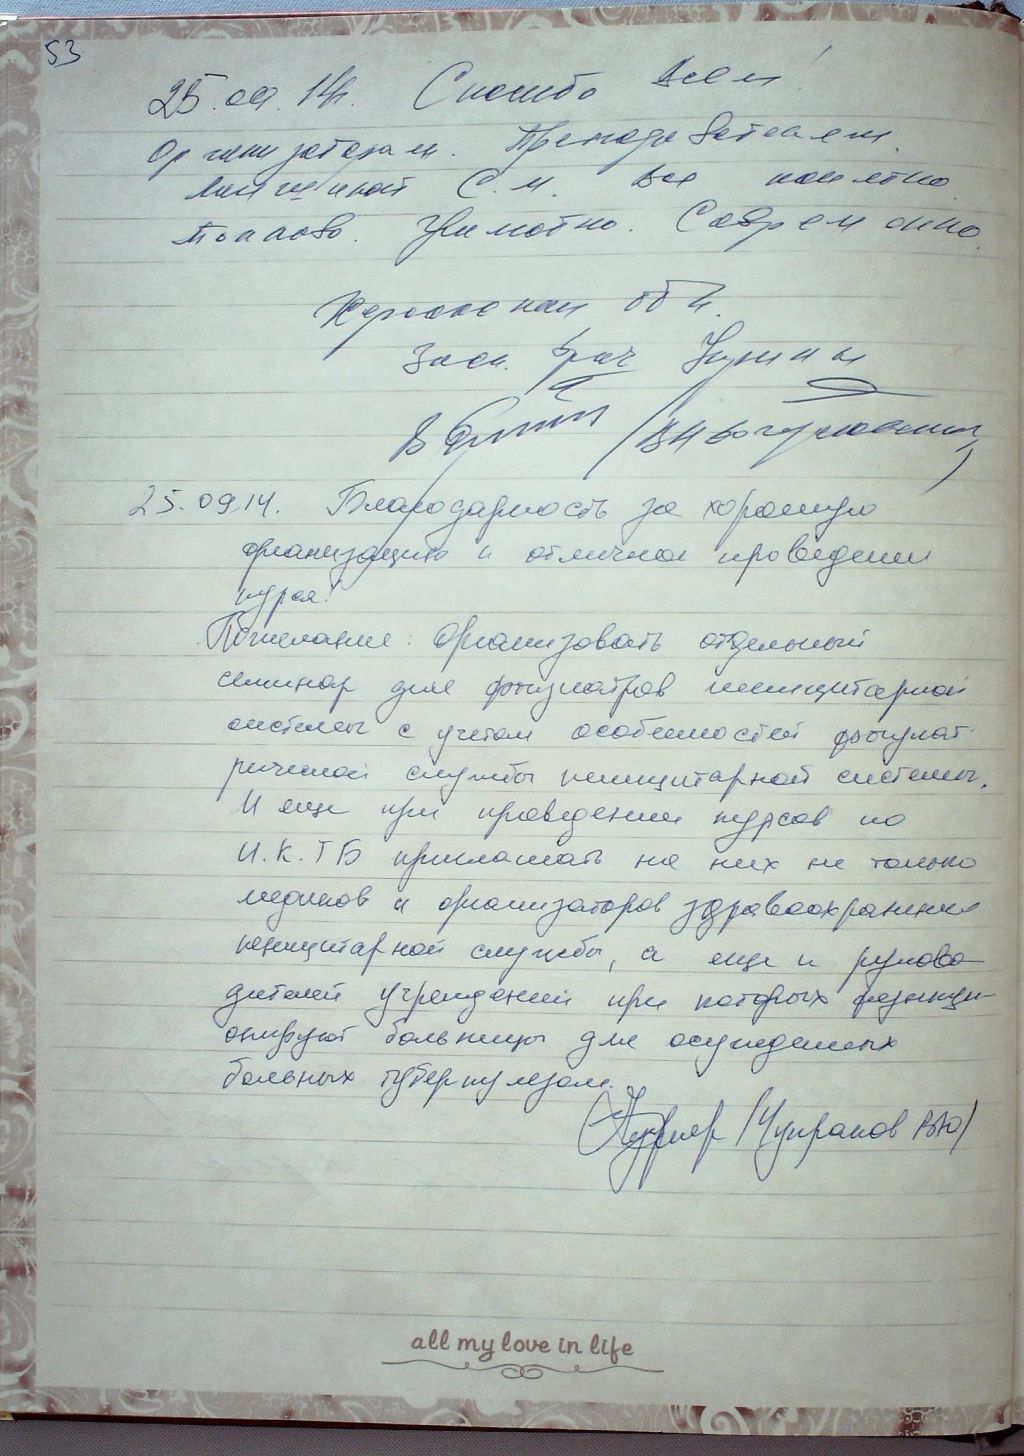 53
25.09.14г. Спасибо Всем!
Организаторам. Преподавателям.
С.М. Все понятно.
Толково. Грамотно. Современно.
Херсонская обл.
Засл. врач Украины
25.09.14. Благодарность за хорошую
организацию и отличное проведение
курса!
Пожелание: организовать отдельный
семинар для фтизиатров пеницитарной
системы с учетом особенностей фтизиат-
рической службы пеницитарной системы.
И еще при проведении курсов по
И.К.ТБ приглашать на них не только
медиков и организаторов здравоохранения
пеницитарной службы, а еще и руково-
дителей учреждений при которых функци-
онируют больницы для осужденных
больных туберкулезом.
(Чупраков В.Ю)
all my love in life